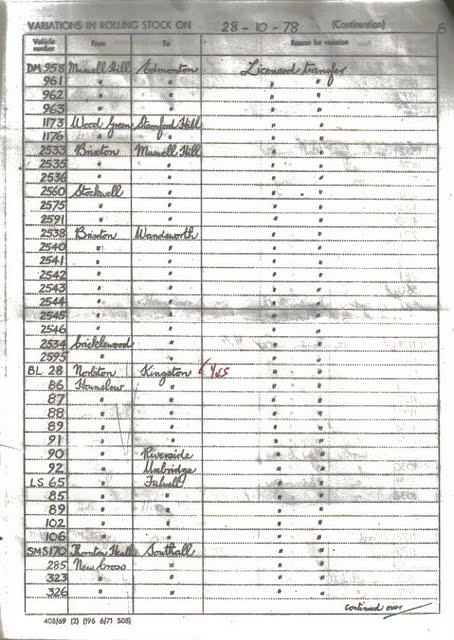 VARIATIONS IN ROLLING STOCK ON 28-10-78 (Continuation)
Vehicle number From To Reason for variation
DM 958 Muswell Hill Edmonton Licensed transfer
961 " " " "
962 " " " "
963 " " " "
1173 Wood Green Stamford Hill " "
1176 " " " "
2533 Brixton Muswell Hill " "
2535 " " " "
2536 " " " "
2560 Stockwell " " "
2575 " " " "
2591 " " " "
2538 Brixton Wandsworth " "
2540 " " " "
2541 " " " "
2542 " " " "
2543 " " " "
2544 " " " "
2545 " " " "
2546 " " " "
2534 Cricklewood " " "
2595 " " " "
BL 28 Norbiton Kingston YES " "
86 Hounslow " " "
87 " " " "
88 " " " "
89 " " " "
91 " " " "
90 " Riverside " "
92 " Uxbridge " "
LS 65 " Fulwell " "
85 " " " "
89 " " " "
102 " " " "
106 " " " "
SMS170 Thornton Heath Southall " "
285 New Cross " " "
323 " " " "
326 " " " "
continued over
408/69 (2) (196 6/71 508)